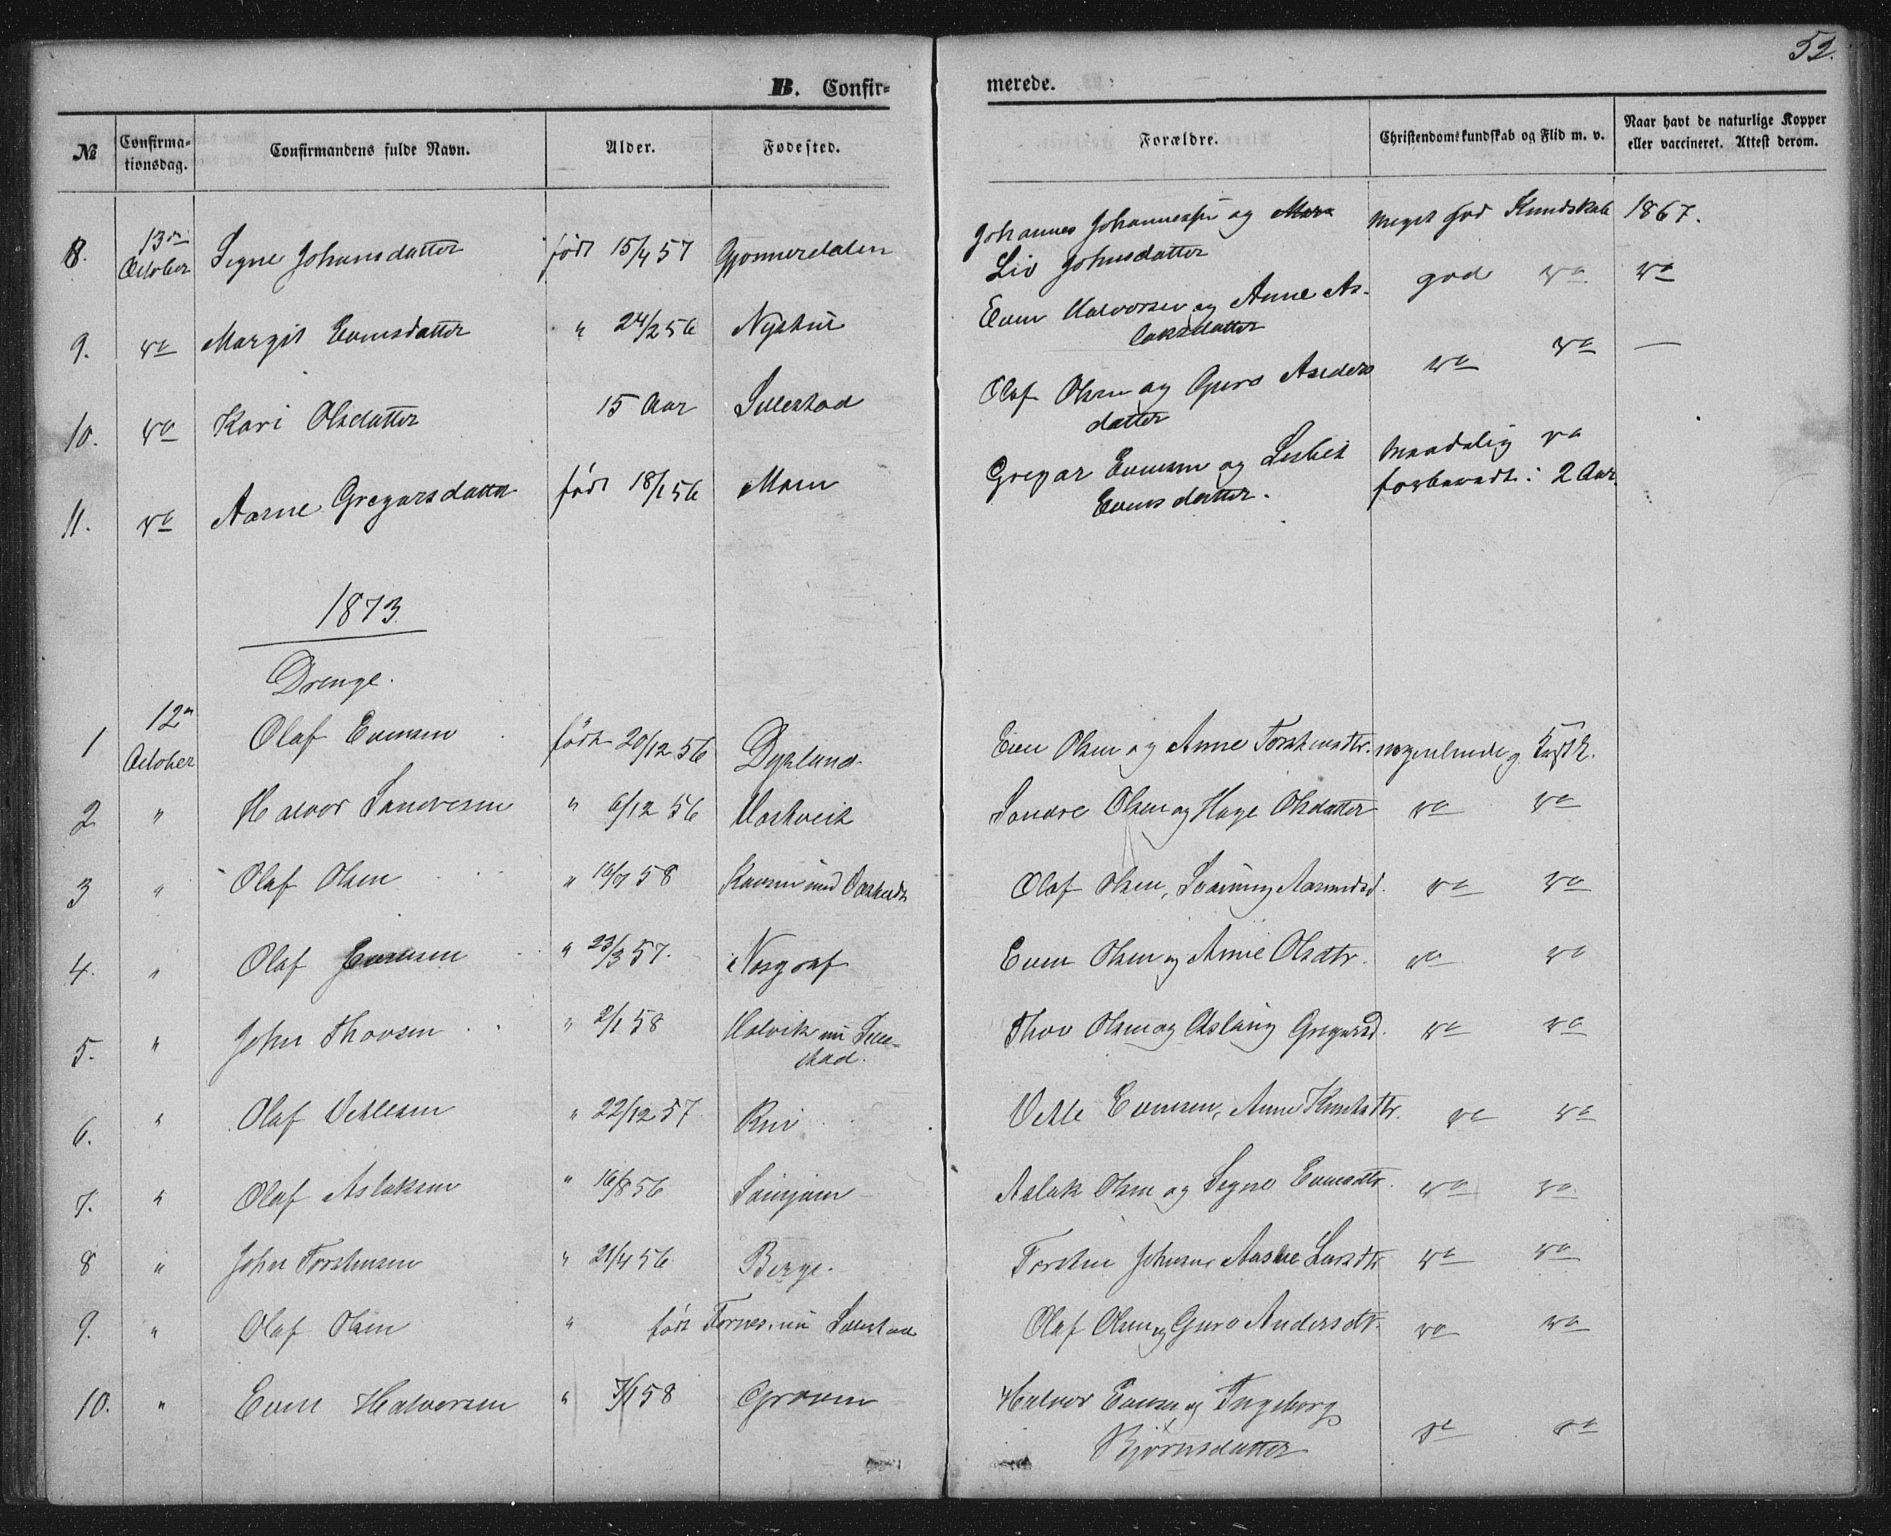 52.
B. Confirmerede.
№ Confirmationsdag. Confirmandens fulde Navn. Alder. Fødested. Forældre. Christendomskundskab og Flid m. v. Naar havt de naturlige Kopper eller vaccineret. Attest derom.
8. 13de October Signe Johansdatter født 15/4 57 Johannes Johannessen og Liv Johnsdatter Meget god Kundskab 1867.
9. do Margit Evensdatter " 24/2 56 Nystul Even Halvorsen og Anne Aslaksdatter god do do
10. do Kari Olsdatter 15 Aar Sillestad Olaf Olsen og Guro Andersdatter do do —
11. do Aarne Gregarsdatter født 18/1 56 Moen Gregar Evensen og Lisbet Evensdatter. maadelig do
forberedt i 2 Aar.
1873.
Drenge.
1 12te October Olaf Evensen født 20/12 56 Dyrlund Even Olsen og Anne Torstensdtr. nogenlunde g.
2 " Halvor Sandresen " 6/12 56 Sondre Olsen og Hage Olsdatter do do
3 " Olaf Olsen " 16/7 58 Olaf Olsen, do do
4. " Olaf Evensen " 23/3 57. Nordgraf Even Olsen og Anne Olsdtr. do do
5. " John Thovsen " 2/1 58 nu Sillestad. Thov Olsen og Aslaug Gregarsd. do do
6. " Olaf Vetlesen " 22/12 57 Rui Vetle Evensen, Anne Knutsdtr. do do
7. " Olaf Aslaksen " 16/8 56 Aslak Olsen og Signe Evensdtr. do do
8 " John Torstensen " 21/4 56 Berge. Torsten Johnsen Aaste Larsdtr do do
9. " Olaf Olsen " født Fornes, nu Sillestad Olaf Olsen og Guro Andersdtr. do do
10. " Even Halvorsen " 7/1 58 Groven Halvor Evensen og Ingeborg Bjørnsdatter do do